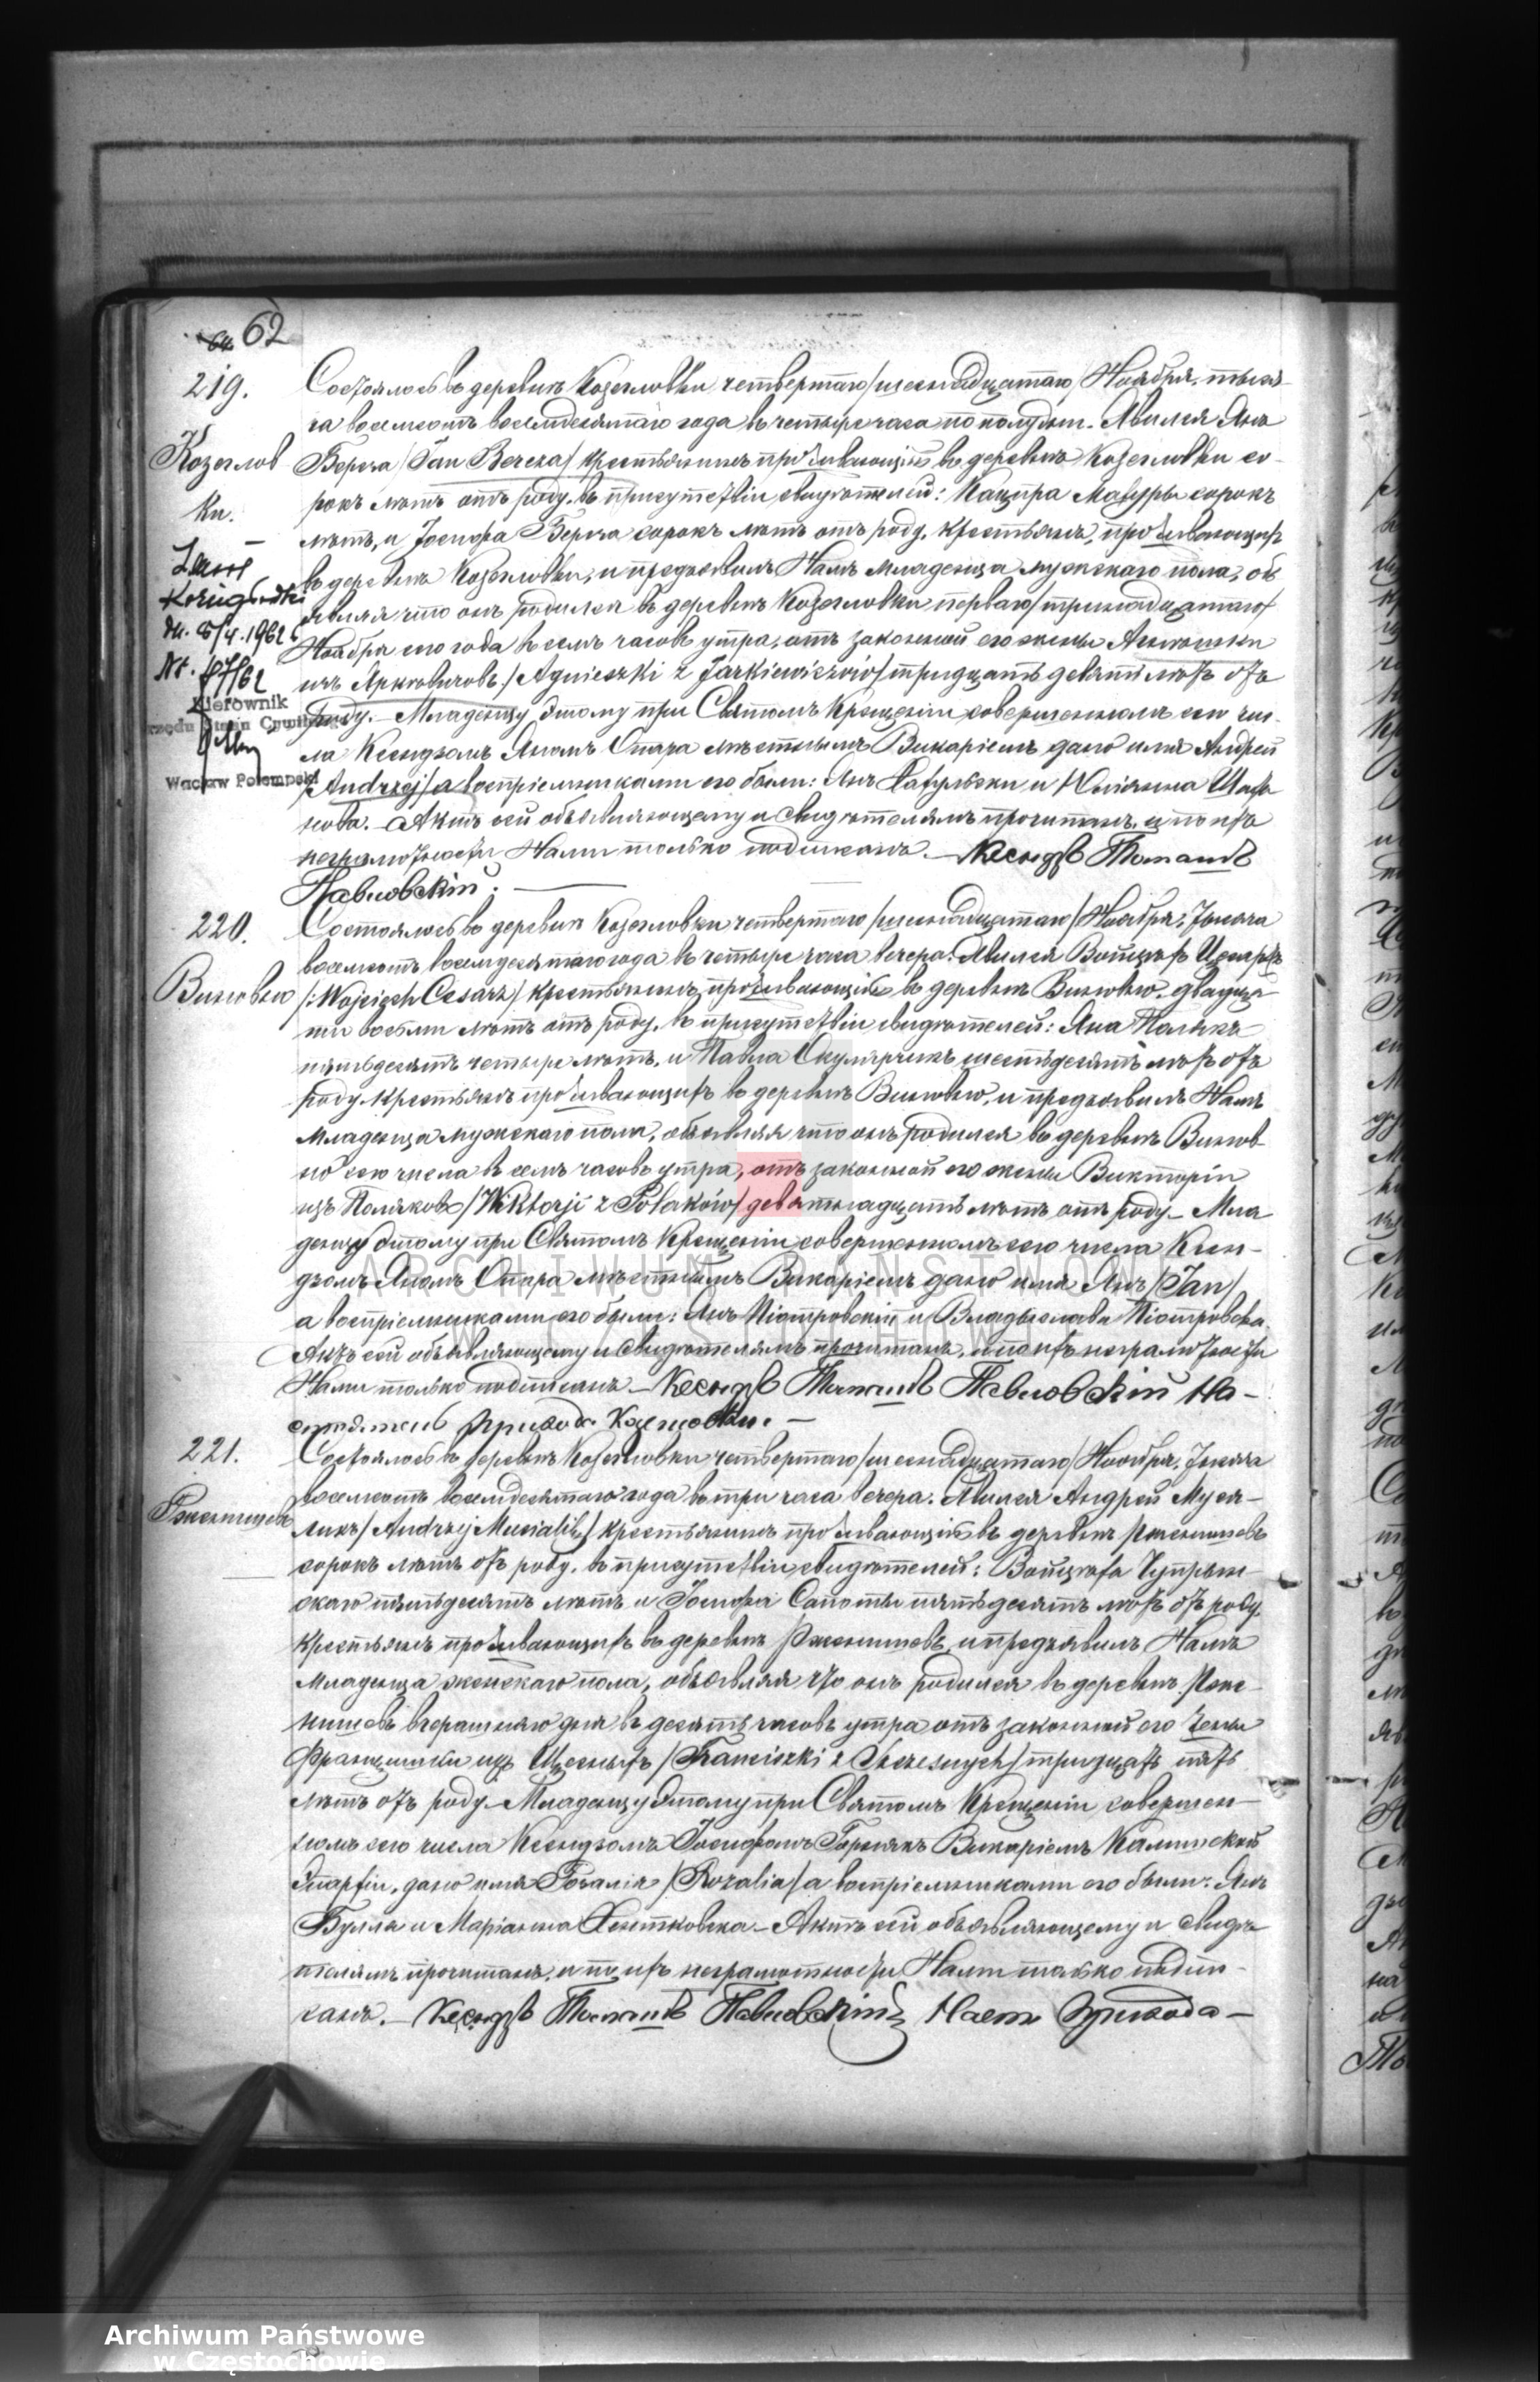 62
219.
Козеглов
ки.
Состоялось въ деревнѣ Козегловки четвертаго/шеснадцатаго/Ноября, тыся-
ча восемьсотъ восемьдесятаго года въ четыре часа по полудни. Явился Янъ
Береза/Jan Bereza/крестьянинъ проживающій въ деревнѣ Козегловки со-
рокъ лѣтъ отъ роду, въ присутствіи свидѣтелей: Мазуры сорокъ
лѣтъ, и Іосифа Береза сорокъ лѣтъ отъ роду, крестьянъ, проживающихъ
въ деревнѣ Козегловки, и предъявилъ Намъ младенца мужскаго пола, об
являя что онъ родился въ деревнѣ Козегловки перваго/тринадцатаго/
Ноября сего года въ семь часовъ утра, отъ законной его жены Агнѣшки
изъ Ярковичовъ/Agnieszki z Jarkiewiczów/тридцать девять лѣтъ отъ
роду. Младенцу этому при Святомъ Крещеніи совершенномъ сего чис-
ла Ксендзомъ Яномъ Опара мѣстнымъ Викаріемъ дано имя Андрей
/Andrzej/а воспріемниками его были: Янъ и Юліянна
Актъ сей объявляющему и свидѣтелямъ прочитанъ, и по ихъ
неграмотности Нами только подписанъ. Ксендзъ Томашъ
Павловскій.
dn. 5/4.1962
Nr. 87/62
Kierownik
Urzędu Stanu Cywilnego
Wacław Polempski
220.
Виновно
Состоялось въ деревнѣ Козегловки четвертаго/шеснадцатаго/Ноября, Тысяча
восемьсотъ восемьдесятаго года въ четыре часа вечера. Явился Войцѣхъ Цесаржъ
/:Wojciech Cesarz/крестьянинъ, проживающій въ деревнѣ Виновно, двадца-
ти восьми лѣтъ отъ роду, въ присутствіи свидѣтелей: Яна Полякъ
пятьдесятъ четыре лѣтъ, и Павла Окулярчикъ шестьдесятъ лѣтъ отъ
роду крестьянъ проживающихъ въ деревнѣ Виновно, и предъявилъ Намъ
младенца мужскаго пола, объявляя что онъ родился въ деревнѣ Винов-
но сего числа въ семь часовъ утра, отъ законной его жены Викторіи
изъ Поляковъ/Wiktorji z Polaków/девятнадцать лѣтъ отъ роду. Мла
денцу этому при Святомъ Крещеніи совершенномъ сего числа Ксен-
дзомъ Яномъ Опара мѣстнымъ Викаріемъ дано имя Янъ/Jan/
а воспріемниками его были: Янъ Піотровскій и Владыслава Піотровска.
Актъ сей объявляющему и свидѣтелямъ прочитанъ, и по ихъ неграмотности
Нами только подписанъ. Ксендзъ Томашъ Павловскій На-
стоятель прихода
221.
Рженишевъ
Состоялось въ деревнѣ Козегловки четвертаго/шеснадцатаго/Ноября, Тысяча
восемьсотъ восемьдесятаго года въ три часа вечера. Явился Андрей Муся-
ликъ/Andrzej Musialik/крестьянинъ проживающій въ деревнѣ Рженишевъ
сорокъ лѣтъ отъ роду, въ присутствіи свидѣтелей: Войцѣха Чупрын-
скаго пятьдесятъ лѣтъ и Іосифа Сапоты пятьдесятъ лѣтъ отъ роду,
крестьянъ проживающихъ въ деревнѣ Рженишевъ, и предъявилъ Намъ
младенца женскаго пола, объявляя что онъ родился въ деревнѣ Рже-
нишевъ вчерашняго дня въ десять часовъ утра отъ законной его жены
Францишки изъ Щесныхъ/Franciszki z Szczesnych/тридцать пять
лѣтъ отъ роду. Младенцу этому при Святомъ Крещеніи совершен-
номъ сего числа Ксендзомъ Іосифомъ Викаріемъ
Епархіи, дано имя Розалія/Rozalia/а воспріемниками его были: Янъ
Булля и Маріанна Актъ сей объявляющему и свидѣ-
телямъ прочитанъ, и по ихъ неграмотности Нами только подпи-
санъ. Ксендзъ Томашъ Павловскій Наст. Прихода
ARCHIWUM PAŃSTWOWE
W CZĘSTOCHOWIE
Archiwum Państwowe
w Częstochowie